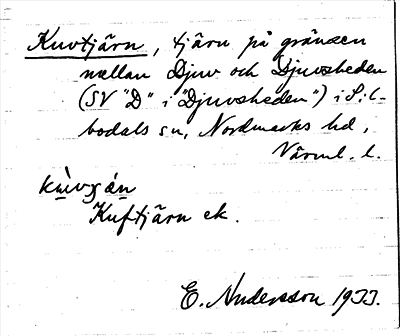 Kuvtjärn, tjärn på gränsen
mellan Djuv och Djuvsheden
(SV "D" i "Djuvsheden") i Sil-
bodals sn, Nordmarks hd,
Värml. l.
Kuftjärn ek.
E. Andersson 1933.